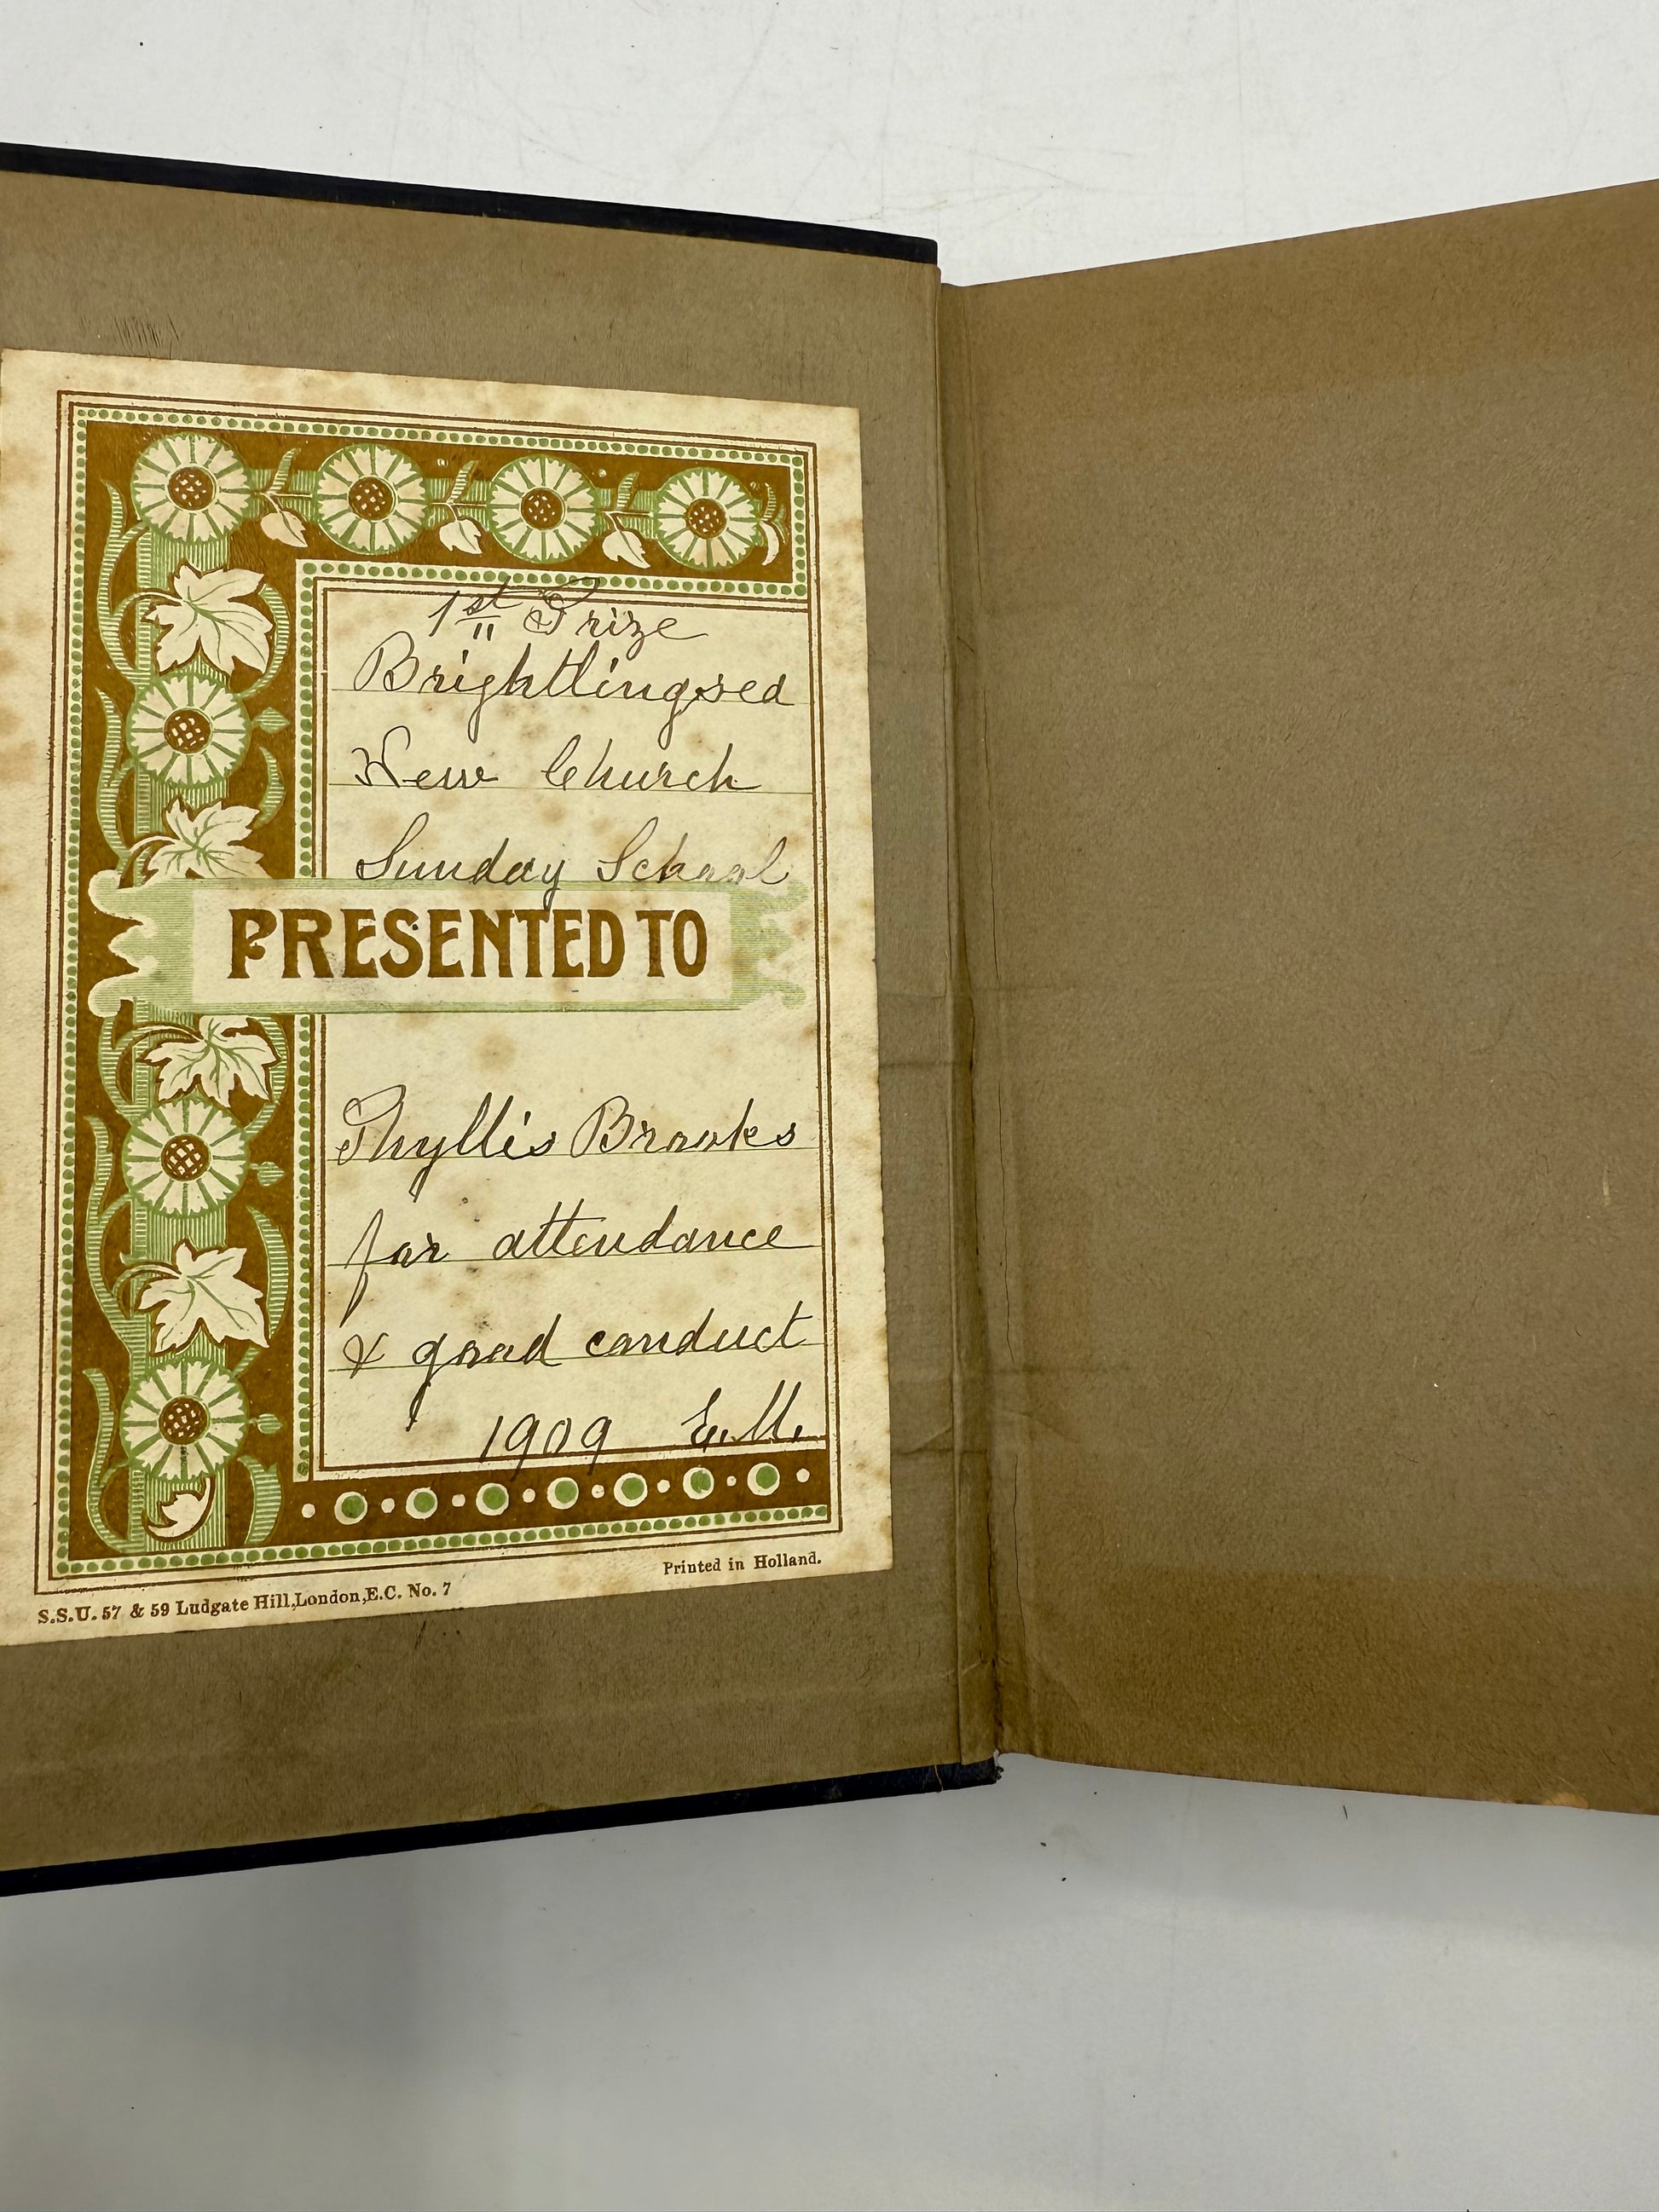 1st Prize
Brightlingsea
New Church
Sunday School
PRESENTED TO
Phyllis Brooks
for attendance
& good conduct
1909 E.M.
Printed in Holland.
S.S.U. 57 & 59 Ludgate Hill, London, E.C. No. 7